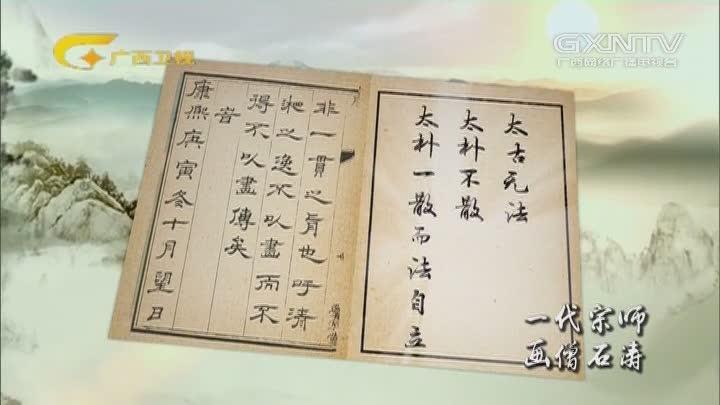 广西卫视
GXNTV
广西网络广播电视台
太古无法
太朴不散
太朴一散而法自立
非一貫之旨也吁清
湘之逸不以畫而不
得不以畫傳矣
旹
康熙庚寅冬十月望日
一代宗师
画僧石涛